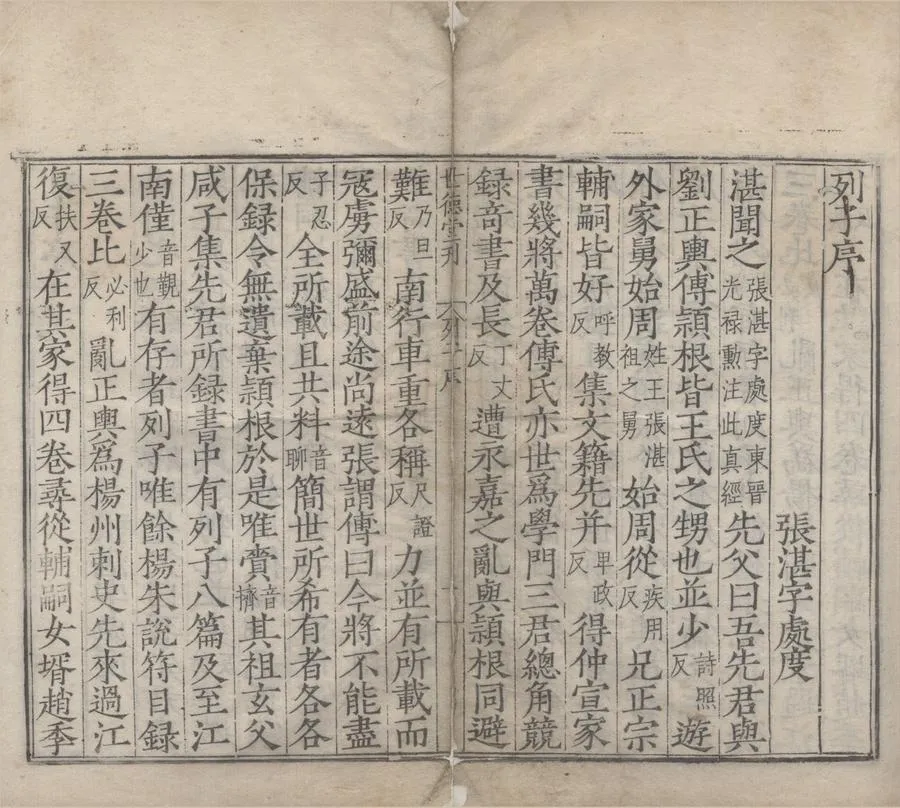 列子序
張湛字處度
湛聞之張湛字處度東晉光禄勳注此真經先父曰吾先君與
劉正輿傅頴根皆王氏之甥也並少詩照反遊
外家舅始周姓王張湛祖之舅始周從疾用反兄正宗
輔嗣皆好呼教反集文籍先并卑政反得仲宣家
書幾將萬卷傅氏亦世爲學門三君總角競
録奇書及長丁丈反遭永嘉之亂與頴根同避
世德堂刊
列子序
難乃旦反南行車重各稱尺證反力並有所載而
宼虜彌盛前途尚遠張謂傅曰今將不能盡
全所載且共料音聊簡世所希有者各各
保録令無遺棄頴根於是唯賷音擠其祖玄父
咸子集先君所録書中有列子八篇及至江
南僅音覲少也有存者列子唯餘楊朱說符目録
三卷比必利反亂正輿爲楊州刺史先來過江
復扶又反在其家得四卷尋從輔嗣女壻趙季